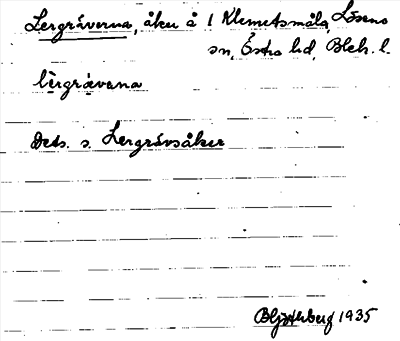 Lergräverna, åker å 1 Klemetsmåla, Lösens
sn, Östra hd, Blek. l.
lèrgrävana
Dets. s. Lergravsåker
1935